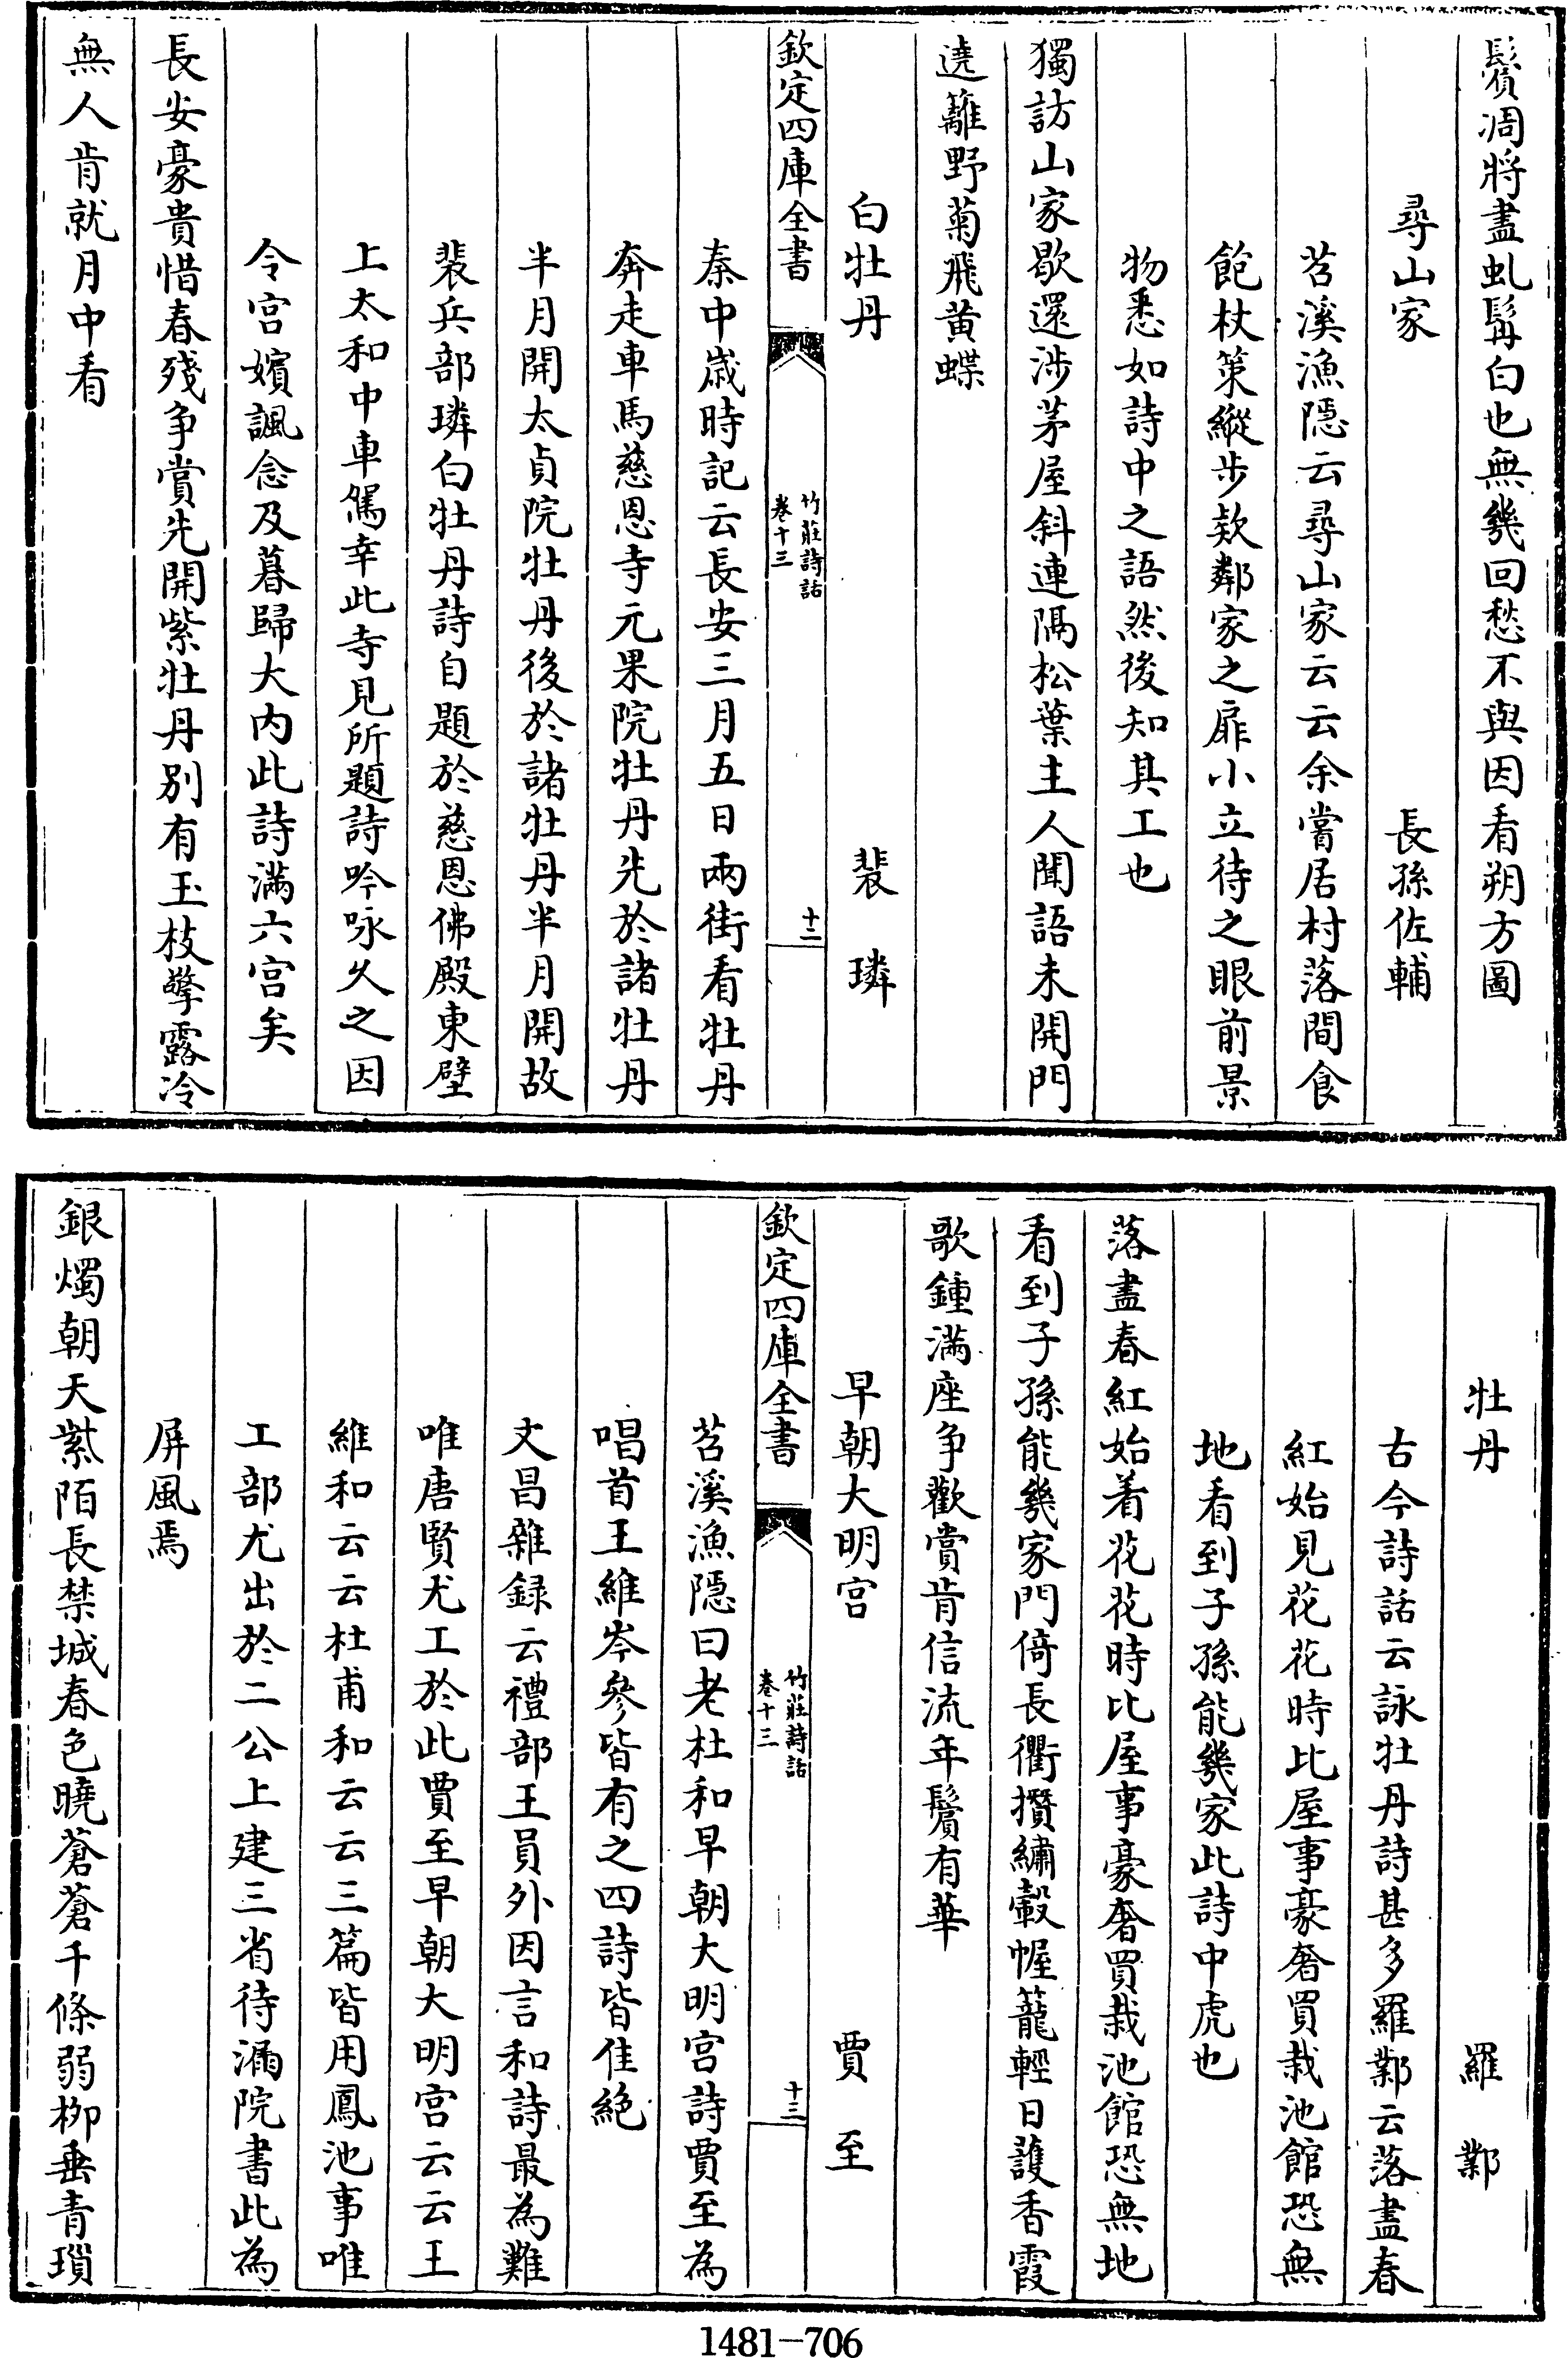 鬢凋將盡虬髯白也無幾回愁不與因看朔方圖
尋山家　長孫佐輔
苕溪漁隱云尋山家云云余嘗居村落間食
飽杖策縱步欵鄰家之扉小立待之眼前景
物悉如詩中之語然後知其工也
獨訪山家歇還涉茅屋斜連隔松葉主人聞語未開門
遶籬野菊飛黄蝶
白牡丹　裴璘
欽定四庫全書
竹莊詩話
卷十三
十二
秦中歲時記云長安三月五日兩街看牡丹
奔走車馬慈恩寺元果院牡丹先於諸牡丹
半月開太貞院牡丹後於諸牡丹半月開故
裴兵部璘白牡丹詩自題於慈恩佛殿東壁
上太和中車駕幸此寺見所題詩吟咏久之因
令宫嬪諷念及暮歸大内此詩滿六宫矣
長安豪貴惜春殘争賞先開紫牡丹别有玉枝擎露冷
無人肯就月中看
牡丹　羅鄴
古今詩話云詠牡丹詩甚多羅鄴云落盡春
紅始見花花時比屋事豪奢買栽池館恐無
地看到子孫能幾家此詩中虎也
落盡春紅始着花花時比屋事豪奢買栽池館恐無地
看到子孫能幾家門倚長衢攢繡轂幄籠輕日護香霞
歌鍾滿座争歡賞肯信流年鬢有華
早朝大明宫　賈至
欽定四庫全書
竹莊詩話
卷十三
十三
苕溪漁隱曰老杜和早朝大明宫詩賈至為
唱首王維岑參皆有之四詩皆佳絶
文昌雜録云禮部王員外因言和詩最為難
唯唐賢尤工於此賈至早朝大明宫云云王
維和云云杜甫和云云三篇皆用鳳池事唯
工部尤出於二公上建三省待漏院書此為
屏風焉
銀燭朝天紫陌長禁城春色曉蒼蒼千條弱柳垂青瑣
1481-706